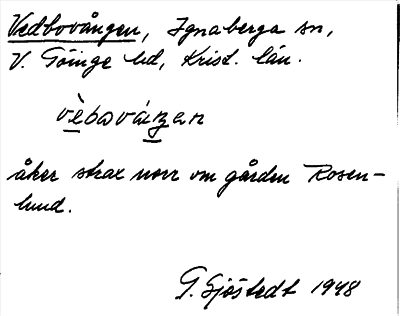 Vedbovången, Ignaberga sn,
V. Göinge hd, Krist. län.
åker strax norr om gården Rosen-
lund.
G. Sjöstedt 1948